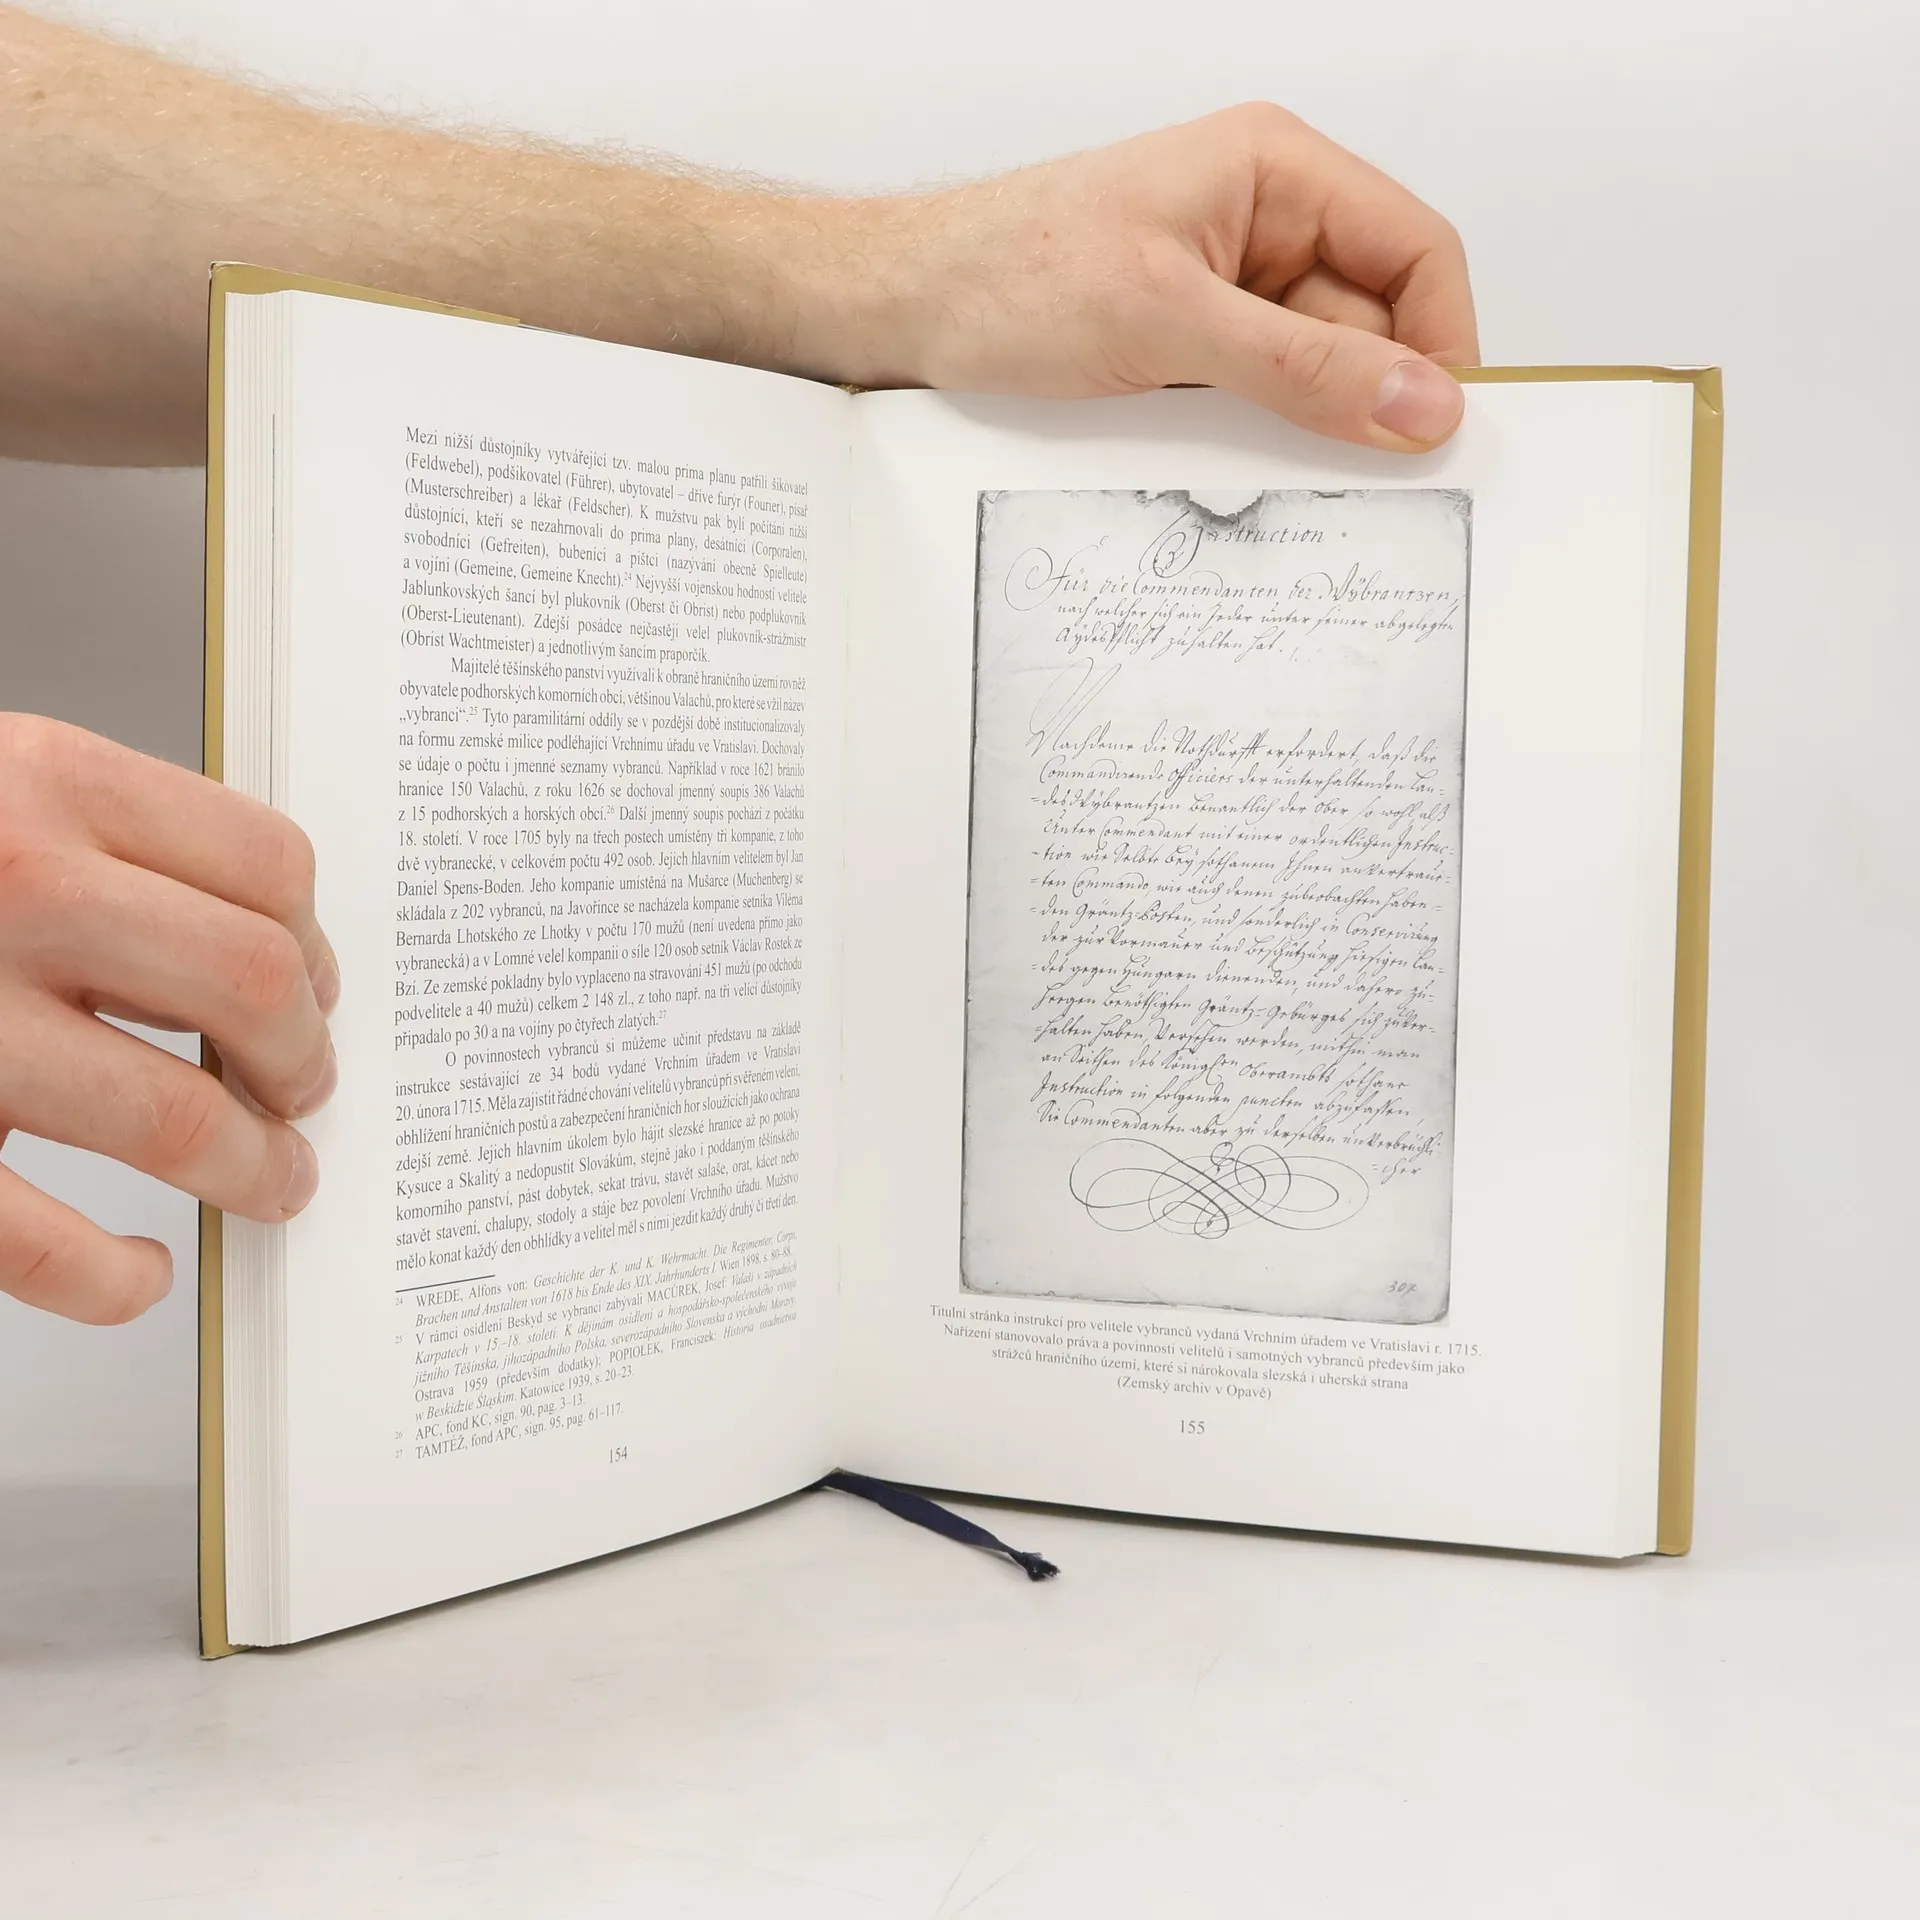 Mezi nižší důstojníky vytvářející tzv. malou prima planu patřili šikovatel
(Feldwebel), podšikovatel (Führer), ubytovatel – dříve furýr (Fourier), písař
(Musterschreiber) a lékař (Feldscher). K mužstvu pak byli počítáni nižší
důstojníci, kteří se nezahrnovali do prima plany, desátníci (Corporalen),
svobodníci (Gefreiten), bubeníci a pištci (nazývání obecně Spielleute)
a vojíni (Gemeine, Gemeine Knecht).24 Nejvyšší vojenskou hodností velitele
Jablunkovských šancí byl plukovník (Oberst či Obrist) nebo podplukovník
(Oberst-Lieutenant). Zdejší posádce nejčastěji velel plukovník-strážmistr
(Obrist Wachtmeister) a jednotlivým šancím praporčík.
Majitelé těšínského panství využívali k obraně hraničního území rovněž
obyvatele podhorských komorních obcí, většinou Valachů, pro které se vžil název
„vybranci“.25 Tyto paramilitární oddíly se v pozdější době institucionalizovaly
na formu zemské milice podléhající Vrchnímu úřadu ve Vratislavi. Dochovaly
se údaje o počtu i jmenné seznamy vybranců. Například v roce 1621 bránilo
hranice 150 Valachů, z roku 1626 se dochoval jmenný soupis 386 Valachů
z 15 podhorských a horských obcí.26 Další jmenný soupis pochází z počátku
18. století. V roce 1705 byly na třech postech umístěny tři kompanie, z toho
dvě vybranecké, v celkovém počtu 492 osob. Jejich hlavním velitelem byl Jan
Daniel Spens-Boden. Jeho kompanie umístěná na Mušarce (Muchenberg) se
skládala z 202 vybranců, na Javořince se nacházela kompanie setníka Viléma
Bernarda Lhotského ze Lhotky v počtu 170 mužů (není uvedena přímo jako
vybranecká) a v Lomné velel kompanii o síle 120 osob setník Václav Rostek ze
Bzí. Ze zemské pokladny bylo vyplaceno na stravování 451 mužů (po odchodu
podvelitele a 40 mužů) celkem 2 148 zl., z toho např. na tři velící důstojníky
připadalo po 30 a na vojíny po čtyřech zlatých.27
O povinnostech vybranců si můžeme učinit představu na základě
instrukce sestávající ze 34 bodů vydané Vrchním úřadem ve Vratislavi
20. února 1715. Měla zajistit řádné chování velitelů vybranců při svěřeném velení,
obhlížení hraničních postů a zabezpečení hraničních hor sloužících jako ochrana
zdejší země. Jejich hlavním úkolem bylo hájit slezské hranice až po potoky
Kysuce a Skalitý a nedopustit Slovákům, stejně jako i poddaným těšínského
komorního panství, pást dobytek, sekat trávu, stavět salaše, orat, kácet nebo
stavět stavení, chalupy, stodoly a stáje bez povolení Vrchního úřadu. Mužstvo
mělo konat každý den obhlídky a velitel měl s nimi jezdit každý druhý či třetí den.
24 WREDE, Alfons von: Geschichte der K. und K. Wehrmacht. Die Regimenter, Corps,
Brachen und Anstalten von 1618 bis Ende des XIX. Jahrhunderts I. Wien 1898, s. 80–88.
25 V rámci osídlení Beskyd se vybranci zabývali MACŮREK, Josef: Valaši v západních
Karpatech v 15.–18. století. K dějinám osídlení a hospodářsko-společenského vývoje
jižního Těšínska, jihozápadního Polska, severozápadního Slovenska a východní Moravy.
Ostrava 1959 (především dodatky); POPIOŁEK, Franciszek: Historia osadnictwa
w Beskidzie Śląskim. Katowice 1939, s. 20–23.
26 APC, fond KC, sign. 90, pag. 3–13.
27 TAMTÉŽ, fond APC, sign. 95, pag. 61–117.
154
Instruction
Für die Commendanten der Wÿbrantzen,
nach welcher sich ein Jeder unter seiner abgelegten
Aÿdespflicht zuhalten hat.
Nachdeme die Nothdurfft erfordert, daß die
Commandirende Officiers der unterhaltenden Lan-
=des Wÿbrantzen Benantlich der Ober so wohl, alß
Unter Commendant mit einer ordentlichen Instruc-
=tion wie Selbte beÿ sothanem Ihnen anvertrau-
=ten Commando, wie auch denen zubeobachten haben-
=den Gräntz-Posten, und sonderlich in Conservirung
der zur Vormauer und Beschützung hiesigen Lan-
=des gegen Hungarn dienenden, und dahero zu-
hoegen benöthigten Gräntz-Gebürges sich zuver-
=halten haben, Versehen werden, mithin man
an Seithen des Königlen Oberambts sothane
Instruction in folgenden puncten abzufassen,
Die Commendanten aber zu derselben unverbrüchli-
=cher
307
Titulní stránka instrukcí pro velitele vybranců vydaná Vrchním úřadem ve Vratislavi r. 1715.
Nařízení stanovovalo práva a povinnosti velitelů i samotných vybranců především jako
strážců hraničního území, které si nárokovala slezská i uherská strana
(Zemský archiv v Opavě)
155